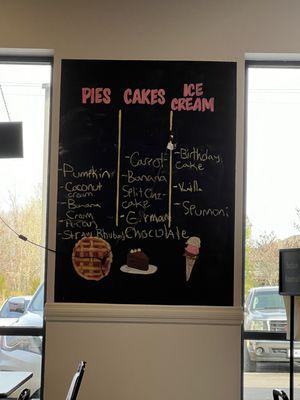 PIES
- Pumpkin
- Coconut
cream
- Banana
Cream
- Pecan
- Straw Rhubarb
CAKES
- Carrot
- Banana
Split
cake
- German
Chocolate
ICE
CREAM
- Birthday
cake
- Vanilla
- Spumoni